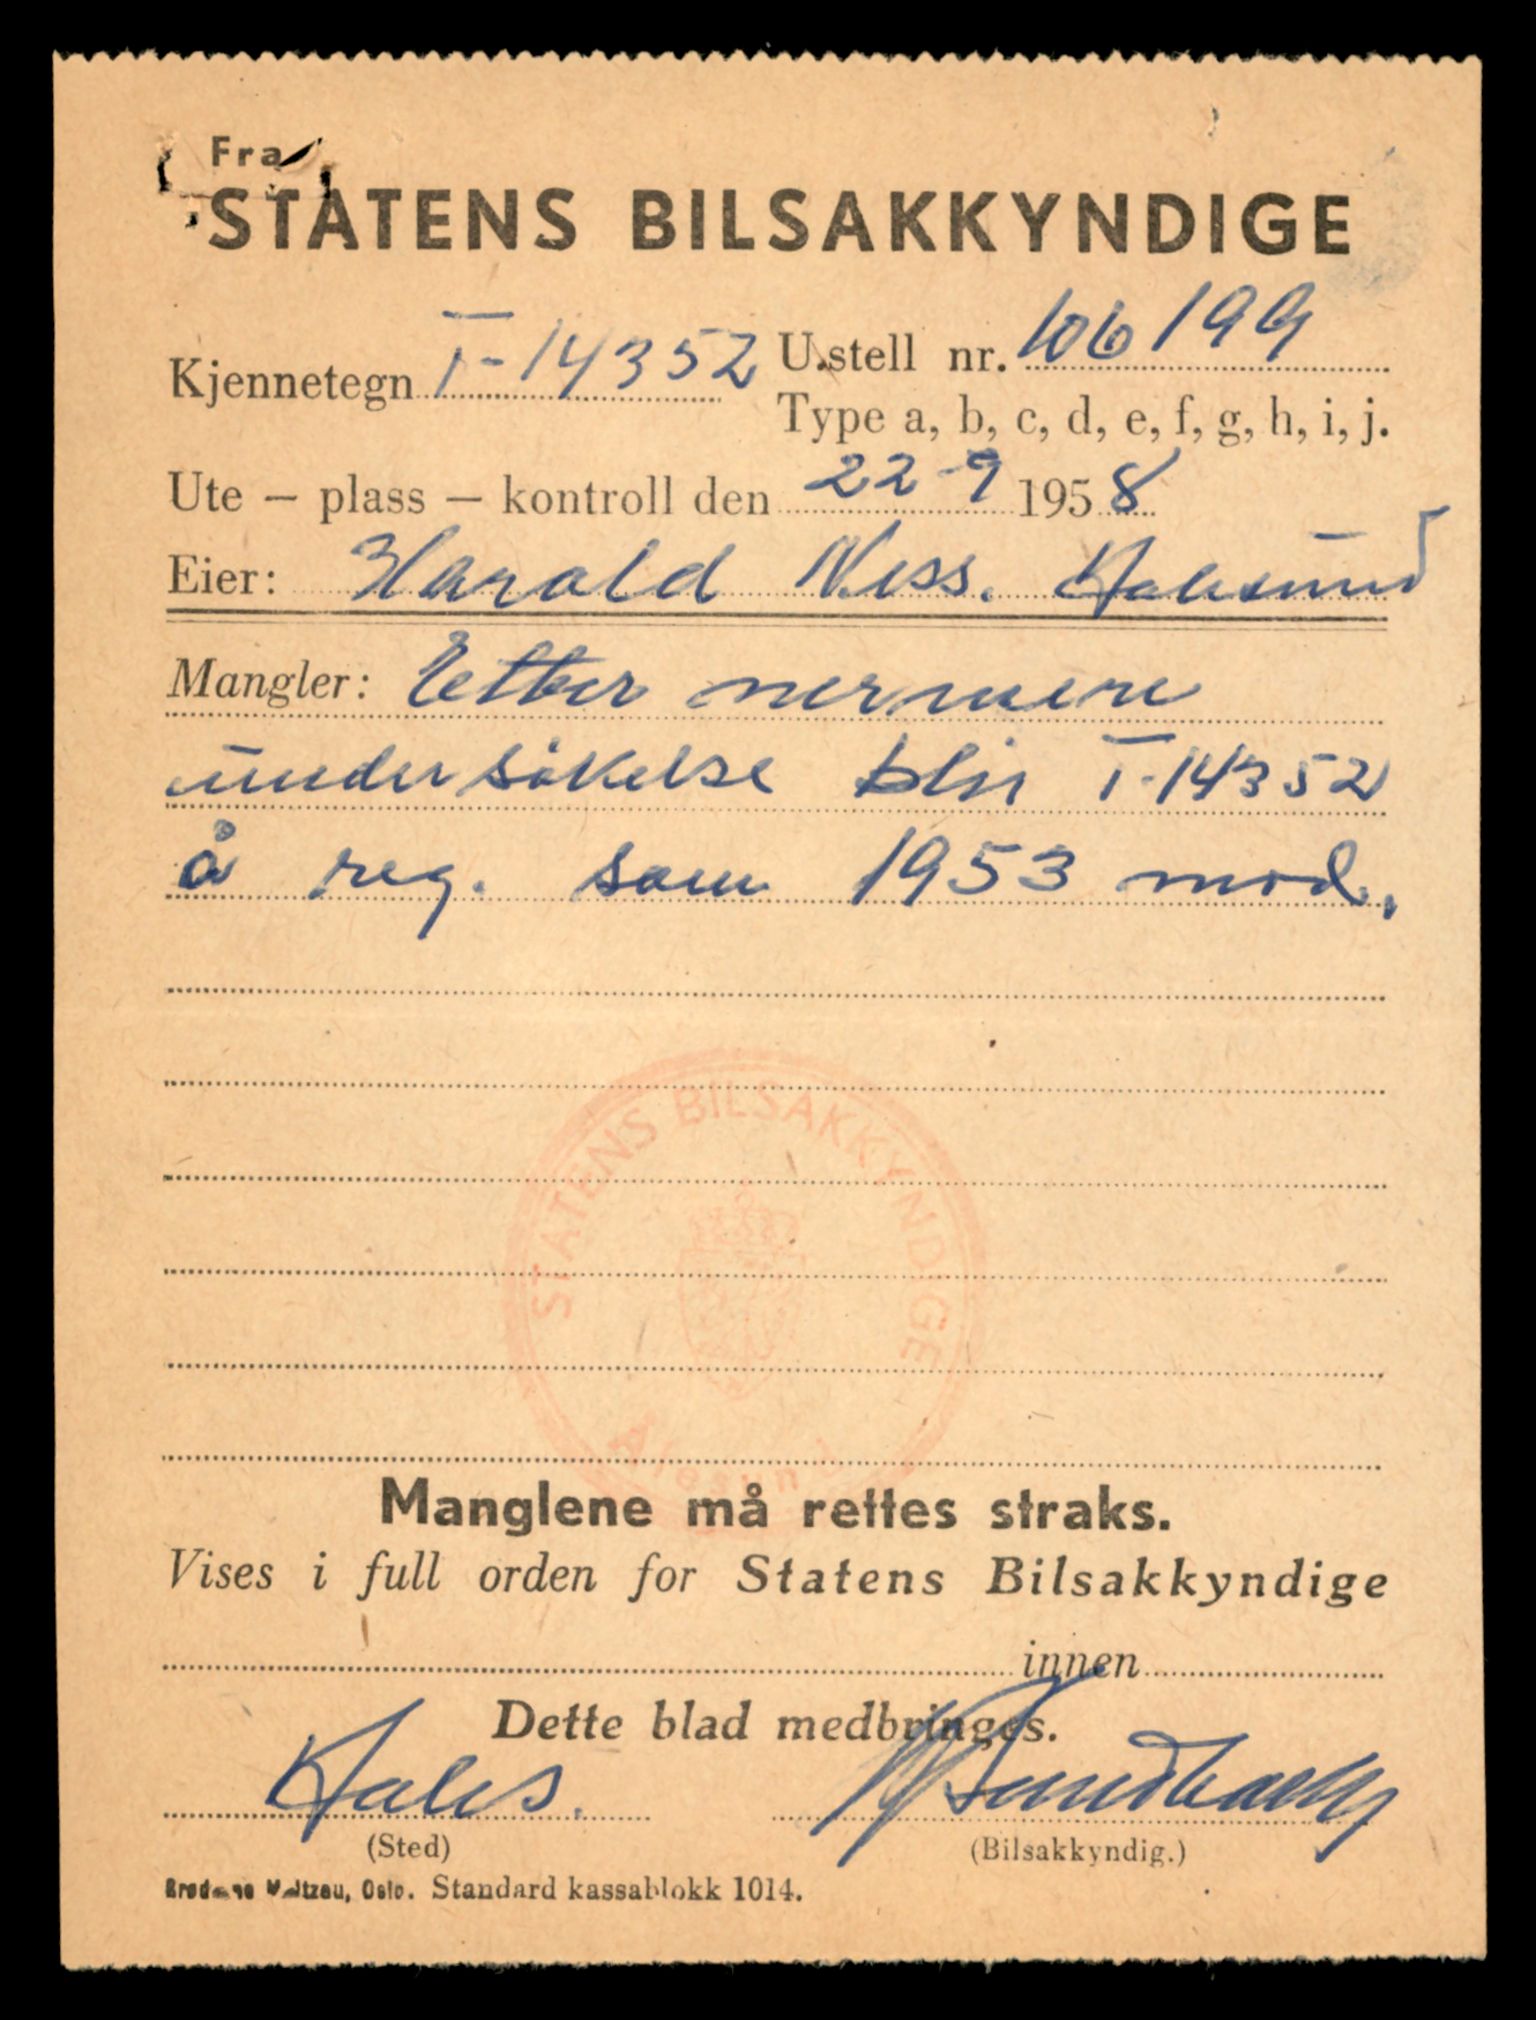 Fra
STATENS BILSAKKYNDIGE
Kjennetegn T-14352 U.stell nr. 106199
Type a, b, c, d, e, f, g, h, i, j.
Ute – plass – kontroll den 22-9 1958
Eier: Harald Ness. Aalesund
Mangler: Etter nermere
undersøkelse blir T-14352
å reg. som 1953 mod.
STATENS BILSAKKYNDIGE
Ålesund
Manglene må rettes straks.
Vises i full orden for Statens Bilsakkyndige
innen
Dette blad medbringes.
Aales.
(Sted) (Bilsakkyndig.)
Brødrene Maltzau, Oslo. Standard kassablokk 1014.